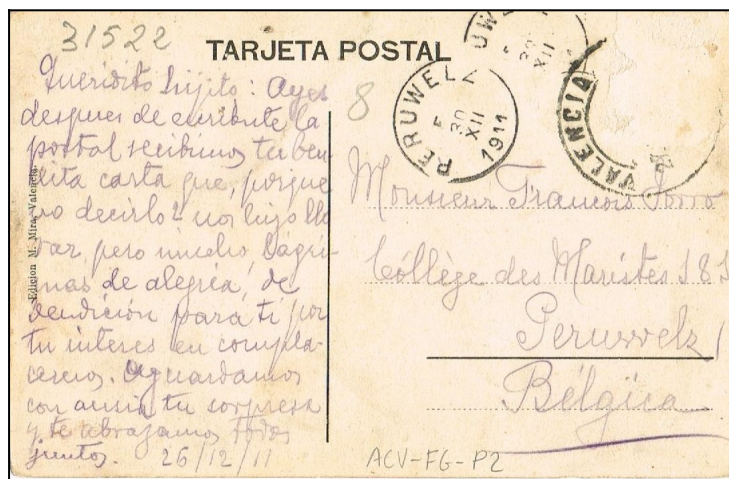 31522
TARJETA POSTAL
Queridito hijito: Ayer
despues de escribirte la
postal recibimos tu ben-
dita carta que, porque
no decirlo? nos hizo llo-
rar, pero mucho, lágri-
mas de alegría, de
bendición para ti por
tu interes en compla-
cernos. Aguardamos
con ansia tu sorpresa
y te abrazamos todos
juntos. 26/12/11
Edicion M. Mira-Valencia
8
PERUWELZ
30
XII
1911
30
XII
VALENCIA
Monsieur François
Collège des Maristes
Peruwelz
Bélgica
ACV-FG-P2